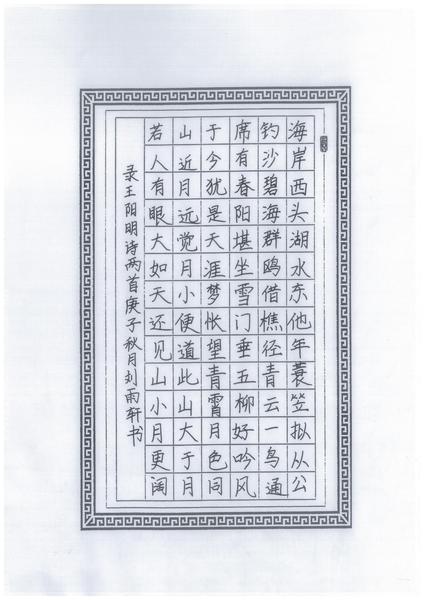 海岸西头湖水东他年蓑笠拟从公
钓沙碧海群鸥借樵径青云一鸟通
席有春阳堪坐雪门垂五柳好吟风
于今犹是天涯梦怅望青霄月色同
山近月远觉月小便道此山大于月
若人有眼大如天还见山小月更阔
录王阳明诗两首庚子秋月刘雨轩书